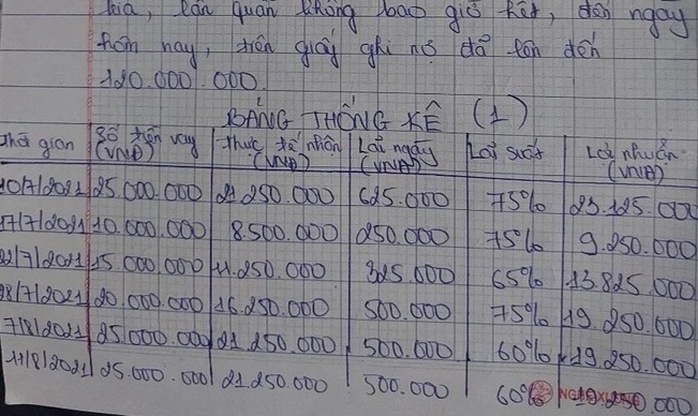 kia, lẩn quẩn không bao giờ hết, đến ngay
hôm nay, trên giấy ghi nợ đã lên đến
120.000.000.
BẢNG THỐNG KÊ (1)
Thời gian Số tiền vay (VNĐ) thực tế nhận (VNĐ) Lãi ngày (VNĐ) Lãi suất Lợi nhuận (VNĐ)
10/7/2021 25.000.000 21.250.000 625.000 75% 23.125.000
17/7/2021 10.000.000 8.500.000 250.000 75% 9.250.000
22/7/2021 15.000.000 11.250.000 325.000 65% 13.825.000
28/7/2021 20.000.000 16.250.000 500.000 75% 19.250.000
7/8/2021 25.000.000 21.250.000 500.000 60% 19.250.000
11/8/2021 25.000.000 21.250.000 500.000 60% 19.250.000